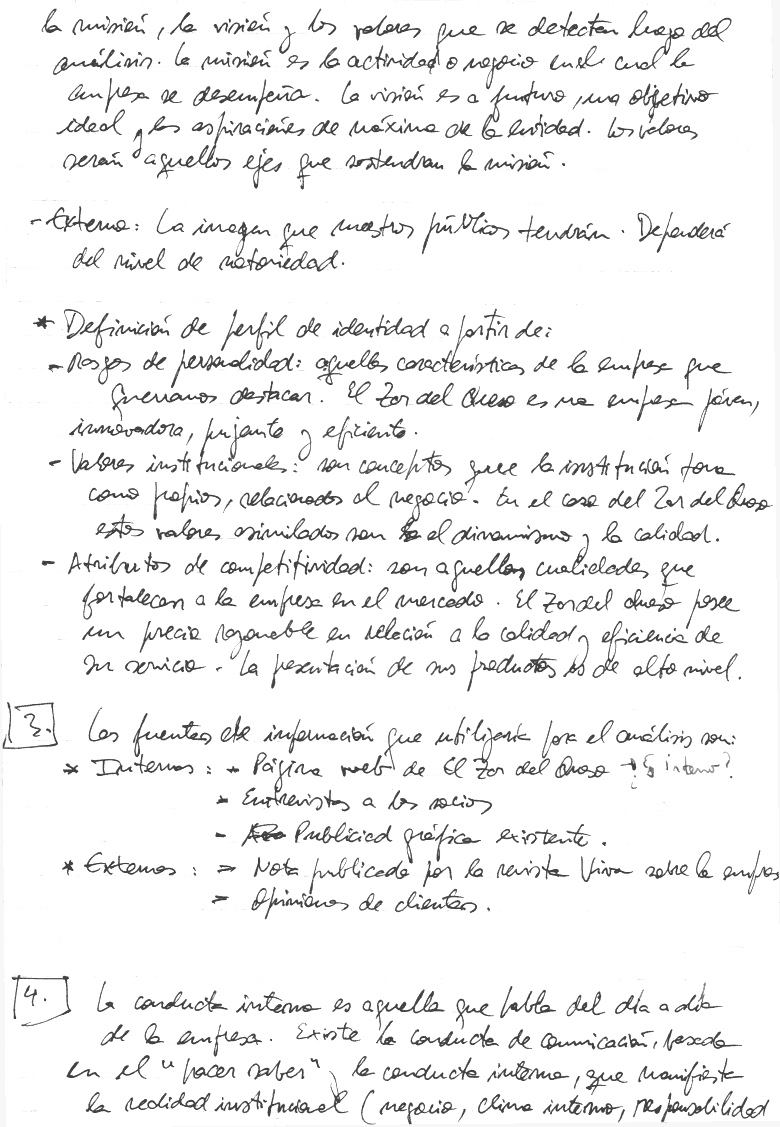 la misión, la visión y los valores que se detectan luego del
análisis. La misión es la actividad o negocio en el cual la
empresa se desempeña. La visión es a futuro, un objetivo
ideal y las aspiraciones de máxima de la entidad. Los valores
serán aquellos ejes que sostendrán la misión.
- Externa: La imagen que nuestros públicos tendrán. Dependerá
del nivel de notoriedad.
* Definición de perfil de identidad a partir de:
- Rasgos de personalidad: aquellas características de la empresa que
queríamos destacar. El Zar del Queso es una empresa joven,
innovadora, pujante y eficiente.
- Valores institucionales: son conceptos que la institución toma
como propios, relacionados al negocio. En el caso del Zar del Queso
estos valores asimilados son el dinamismo y la calidad.
- Atributos de competitividad: son aquellas cualidades que
fortalecen a la empresa en el mercado. El Zar del Queso posee
un precio razonable en relación a la calidad y eficiencia de
su servicio. La presentación de sus productos es de alto nivel.
3. Las fuentes de información que utilizaría para el análisis son:
* Internas: - Página web de El Zar del Queso → ¿Es interno?
- Entrevistas a los socios
- Publicidad gráfica existente.
* Externas: - Nota publicada por la revista Viva sobre la empresa
- Opiniones de clientes.
4. La conducta interna es aquella que habla del día a día
de la empresa. Existe la conducta de comunicación, basada
en el "hacer saber" y la conducta interna, que manifiesta
la realidad institucional (negocio, clima interno, responsabilidad